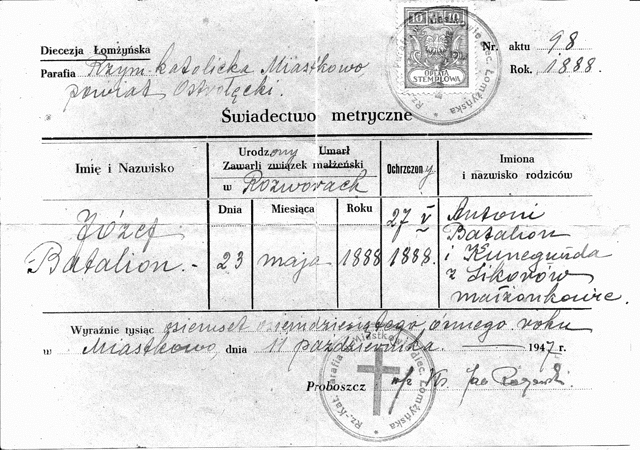 Diecezja Łomżyńska
Parafia Rzym-katolicka Miastkowo
powiat Ostrołęcki.
Nr. aktu 98
Rok. 1888.
10 10
OPŁATA
STEMPLOWA
Świadectwo metryczne
Imię i Nazwisko
Urodzony Umarł
Zawarli związek małżeński
w Rozworach
Dnia Miesiąca Roku
Ochrzczony
Imiona
i nazwisko rodziców
Józef
Batalion.-
23 maja 1888
27 V
1888.
Antoni
Batalion
i Kunegunda
z Sikorów
małżonkowie.
Wyraźnie tysiąc osiemset osiemdziesiątego ósmego roku
w Miastkowo, dnia 11 października. 1947 r.
Proboszcz Ks.
Rz.-Kat. Parafia Miastkowo diec. Łomżyńska